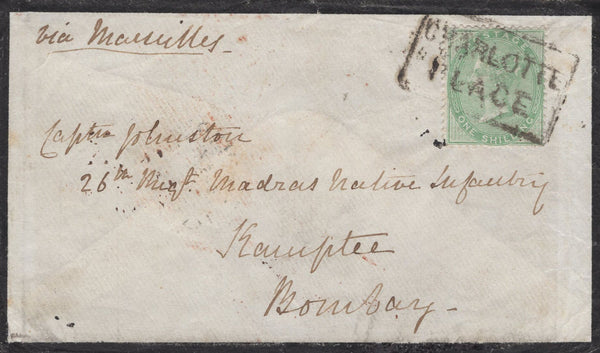 via Marseilles
CHARLOTTE
PLACE
POSTAGE
ONE SHILLING
Captn Johnston
26th Regt. Madras Native Infantry
Kamptee
Bombay